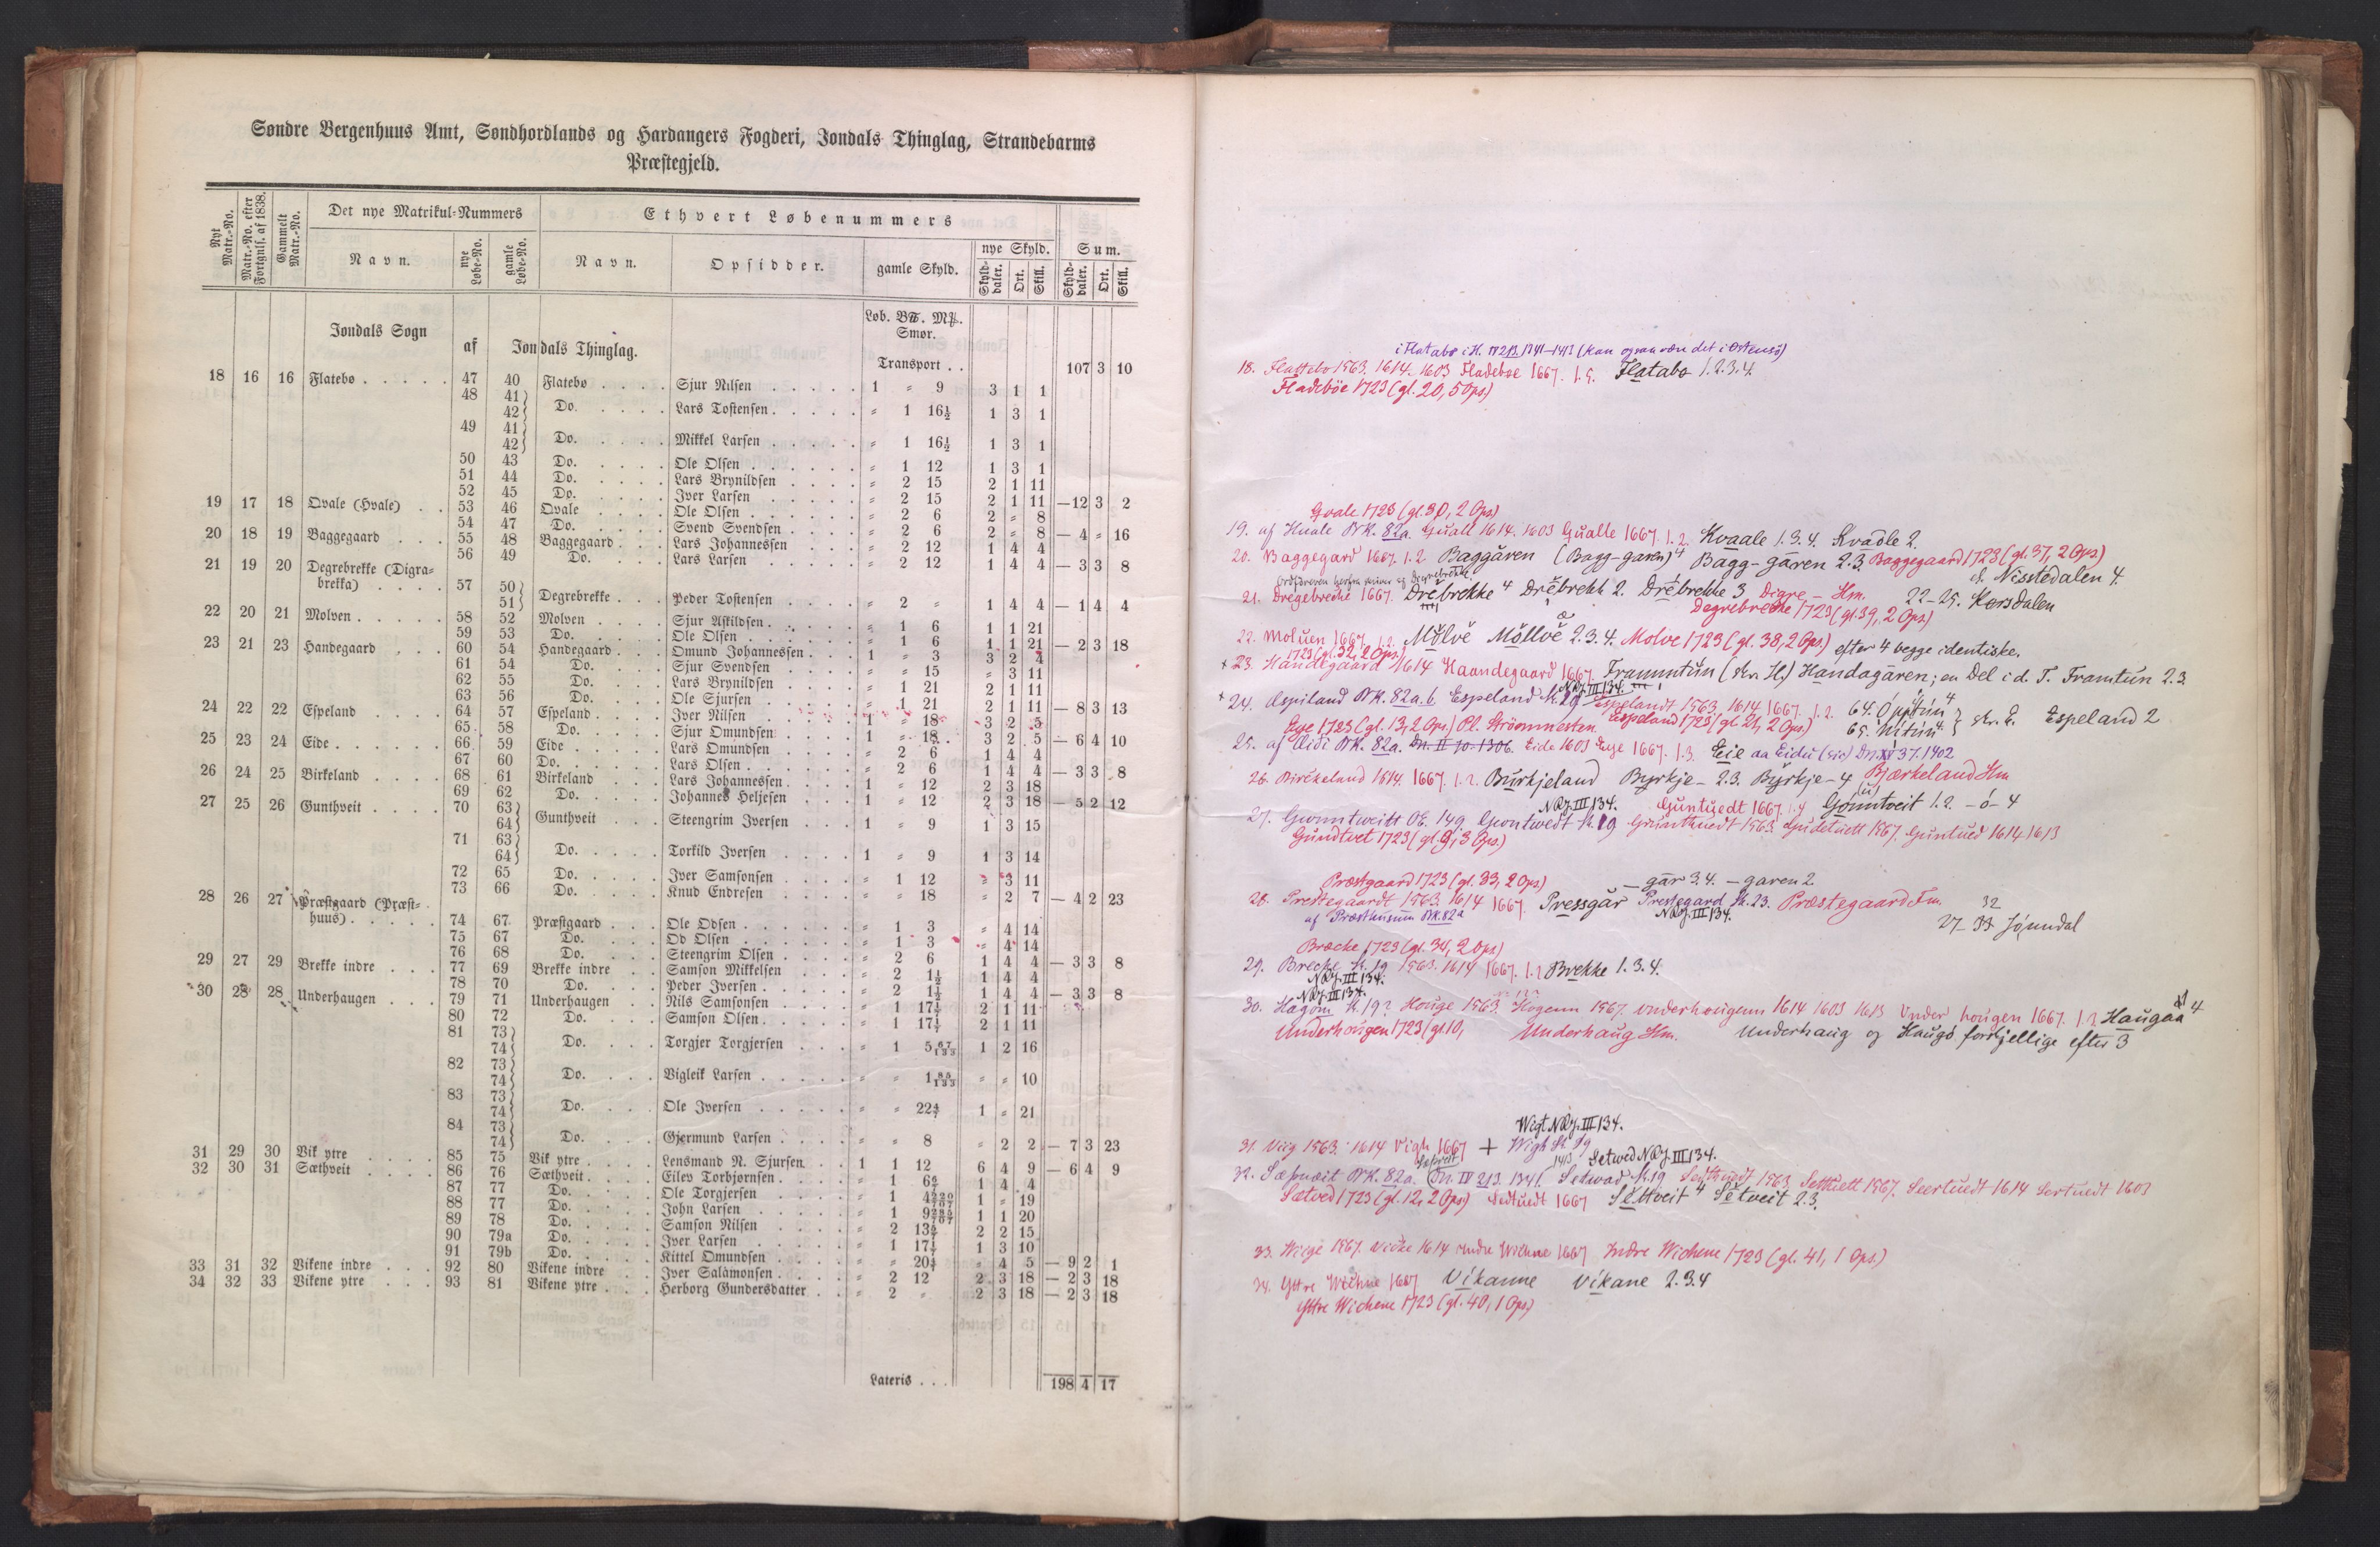 Søndre Bergenhuus Amt, Søndhordlands og Hardangers Fogderi, Jondals Thinglag, Strandebarms
Præstegjeld.
Nyt Matr.-No.
Matr.-No. efter Fortgnls. af 1838.
Gammelt Matr.-No.
Det nye Matrikul-Nummers
Ethvert Løbenummers
Navn.
nye Løbe-No.
gamle Løbe-No.
Navn.
Opsidder.
gamle Skyld.
nye Skyld.
Skylddaler. Ort. Skill.
Sum.
Skylddaler. Ort. Skill.
Jondals Sogn af Jondals Thinglag.
Løb. B℔. M℔.
Smør.
Transport . . 107 3 10
18 16 16 Flatebø . . . . . 47 40 Flatebø . . . . Sjur Nilsen . . . . . 1 " 9 3 1 1
48 41 42 Do. . . . . Lars Tostensen . . . . . " 1 16½ 1 3 1
49 41 42 Do. . . . . Mikkel Larsen . . . . . " 1 16½ 1 3 1
50 43 Do. . . . . Ole Olsen . . . . . . " 1 12 1 3 1
51 44 Do. . . . . Lars Brynildsen . . . . " 2 15 2 1 11
52 45 Do. . . . . Iver Larsen . . . . . " 2 15 2 1 11 — 12 3 2
19 17 18 Qvale (Hvale) . . 53 46 Qvale . . . . Ole Olsen . . . . . . " 2 6 2 " 8
54 47 Do. . . . . Svend Svendsen . . . . " 2 6 2 " 8 — 4 " 16
20 18 19 Baggegaard . . . 55 48 Baggegaard . . . Lars Johannessen . . . " 2 12 1 4 4
56 49 Do. . . . Lars Larsen . . . . . " 2 12 1 4 4 — 3 3 8
21 19 20 Degrebrekke (Digra-
brekka) . . . . 57 50 51 Degrebrekke . . . Peder Tostensen . . . . " 2 " 1 4 4 — 1 4 4
22 20 21 Molven . . . . . 58 52 Molven . . . . Sjur Askildsen . . . . . " 1 6 1 1 21
59 53 Do. . . . . Ole Olsen . . . . . . " 1 6 1 1 21 — 2 3 18
23 21 23 Handegaard . . . 60 54 Handegaard . . . Omund Johannessen . . . 1 " 3 3 2 4
61 54 Do. . . . Sjur Svendsen . . . . " " 15 " 3 11
62 55 Do. . . . Lars Brynildsen . . . . " 1 21 2 1 11
63 56 Do. . . . Ole Sjursen . . . . . " 1 21 2 1 11 — 8 3 13
24 22 22 Espeland . . . . 64 57 Espeland . . . . Iver Nilsen . . . . . 1 " 18 3 2 5
65 58 Do. . . . . Sjur Omundsen . . . . 1 " 18 3 2 5 — 6 4 10
25 23 24 Eide . . . . . . 66 59 Eide . . . . . Lars Omundsen . . . . " 2 6 1 4 4
67 60 Do. . . . . . Lars Olsen . . . . . . " 2 6 1 4 4 — 3 3 8
26 24 25 Birkeland . . . . 68 61 Birkeland . . . Lars Johannessen . . . . 1 " 12 2 3 18
69 62 Do. . . . Johannes Heljesen . . . 1 " 12 2 3 18 — 5 2 12
27 25 26 Gunthveit . . . . 70 63 64 Gunthveit . . . Steengrim Iversen . . . 1 " 9 1 3 15
71 63 64 Do. . . . . Torkild Iversen . . . . 1 " 9 1 3 14
72 65 Do. . . . . Iver Samsonsen . . . . " 1 12 " 3 11
73 66 Do. . . . . Knud Endresen . . . . " " 18 " 2 7 — 4 2 23
28 26 27 Præstgaard (Præst-
huus) . . . . . 74 67 Præstgaard . . . Ole Odsen . . . . . . " 1 3 " 4 14
75 67 Do. . . . Od Olsen . . . . . . " 1 3 " 4 14
76 68 Do. . . . Steengrim Olsen . . . . " 2 6 1 4 4 — 3 3 8
29 27 29 Brekke indre . . . 77 69 Brekke indre . . Samson Mikkelsen . . . " 2 1½ 1 4 4
78 70 Do. . . . Peder Iversen . . . . . " 2 1½ 1 4 4 — 3 3 8
30 28 28 Underhaugen . . . 79 71 Underhaugen . . Nils Samsonsen . . . . " 1 17½ 2 1 11
80 72 Do. . . . Samson Olsen . . . . . " 1 17½ 2 1 11
81 73 74 Do. . . . Torgjer Torgjersen . . . " 1 5 67/133 1 2 16
82 73 74 Do. . . . Vigleik Larsen . . . . . " " 1 85/133 " " 10
83 73 74 Do. . . . Ole Iversen . . . . . " " 22 1 " 21
84 73 74 Do. . . . Gjermund Larsen . . . . " " 8 " 2 2 — 7 3 23
31 29 30 Vik ytre . . . . 85 75 Vik ytre . . . . Lensmand N. Sjursen . . 1 1 12 6 4 9 — 6 4 9
32 30 31 Sæthveit . . . . 86 76 Sæthveit . . . . Eilev Torbjørnsen . . . . " 1 6 1 4 4
87 77 Do. . . . . Ole Torgjersen . . . . " 1 4 1 " 19
88 77 Do. . . . . John Larsen . . . . . " 1 9 1 1 20
89 78 Do. . . . . Samson Nilsen . . . . " 2 13 2 2 15
90 79a Do. . . . . Iver Larsen . . . . . " 1 17 1 3 10
91 79b Do. . . . . Kittel Omundsen . . . . " " 20 " 4 5 — 9 2 1
33 31 32 Vikene indre . . . 92 80 Vikene indre . . Iver Salamonsen . . . . " 2 12 2 3 18 — 2 3 18
34 32 33 Vikene ytre . . . 93 81 Vikene ytre . . . Herborg Gundersdatter . . " 2 " 2 3 18 — 2 3 18
Lateris . . . 198 4 17
i Flatabø i H. 1341—1413 (kan ogsaa være det i Østensø)
18. Flattebo 1563. 1614. 1603 Fladebøe 1667. 1.5. Flatabø 1.2.3.4.
Fladeböe 1723 (gl. 20, 5 Ops.)
Qvale 1723 (gl. 30, 2 Ops.)
19. af Huale BK. 82a. Quall 1614. 1603 Qualle 1667. 1.2. Kvaale 1.3.4. Kvadle 2.
20. Baggegard 1667. 1.2. Baggåren (Bagg-garen) 4 Bagg-gären 2.3 Baggegaard 1723 (gl. 37, 2 Ops.)
cf. Nisstedalen 4.
21. Dregebreche 1667. Drebrekke 4 Drebrekk 2. Drebrekke 3 Digre — Hm. 22–25. Korsdalen
Degrebrecke 1723 (gl. 39, 2 Ops.)
22. Moluen 1667 1.2. Mölve Möllve 2.3.4. Molve 1723 (gl. 38, 2 Ops.) efter 4 begge identiske.
1723 (gl. 32, 2 Ops.)
+ 23. Handegaard 1614 Haandegaard 1667. Frammtún (skr. H.) Handagåren; en Del i d. T. Framtun 2.3
NRJ. III 134.
+ 24. Aspiland BK. 82a. b Espeland St. 19 Espelandt 1563. 1614. 1667. 1.2. 64. Öppitún 4
65. Nitún 4. } skr. E. Espeland 2
Eye 1723 (gl. 13, 2 Ops.) Pl. Strömmesten Espeland 1723 (gl. 21, 2 Ops.)
25. af Eidi BK. 82a. Dn. II 70. 1306. Eide 1603 Eye 1667. 1.3. Eie aa Eidii (sic) Dn. XV 37. 1402
26. Birckeland 1614. 1667. 1.2. Burkjeland Byrkje- 2.3. Byrkje- 4 Bjærkeland Hm
NRJ. III 134. Guntuedt 1667. 1.4 Gönntveit 1.2. -ó- 4
27. Gwnntweitt OE. 149 Gwntwedt St. 19 Grunthuedt 1563. Gudetuett 1567. Guntued 1614 1613
Gundtvet 1723 (gl. 9, 3 Ops.)
Præstgaard 1723 (gl. 33, 2 Ops.) — går 3.4. — garen 2
28. Prestegaardt 1563. 1614 1667. Pressgår Prestegard St. 23. Præstegaard Fm.
af Præsthusum BK. 82a NRJ. III 134.
27–32 Jómundal
Bræcke 1723 (gl. 34, 2 Ops.)
29. Brecke St. 19 1563. 1614 1667. 1.2 Brekke 1.3.4.
NRJ. III 134.
NRJ. III 134.
30. Hagom St. 19? Houge 1563. Hogenn 1567. vnderhougenn 1614 1603 1613 Vnder hougen 1667. 1.2. Haugaa 4
Underhougen 1723 (gl. 10, Underhaug Hm. Underhaug og Haugå forskjellige efter 3
Wigt NRJ. III 134.
31. Viig 1563. 1614 Vigh 1667 + Wigh St. 19
Setwed NRJ. III 134.
32. Sæþuæit BK. 82a. Dn. IV 213. 1341. 1413 Setwad St. 19 Setthuedt 1563. Settuett 1567. Seertuedt 1614 Sertuedt 1603
Sætved 1723 (gl. 12, 2 Ops.) Sedtuedt 1667 Settveit 4 Setveit 2.3.
33. Wiige 1567. Vicke 1614 Indre Wichene 1667 Indre Wichene 1723 (gl. 41, 1 Ops.)
34. Yttre Wichene 1667 Vikanne Vikane 2.3.4
Yttre Wichene 1723 (gl. 40, 1 Ops.)